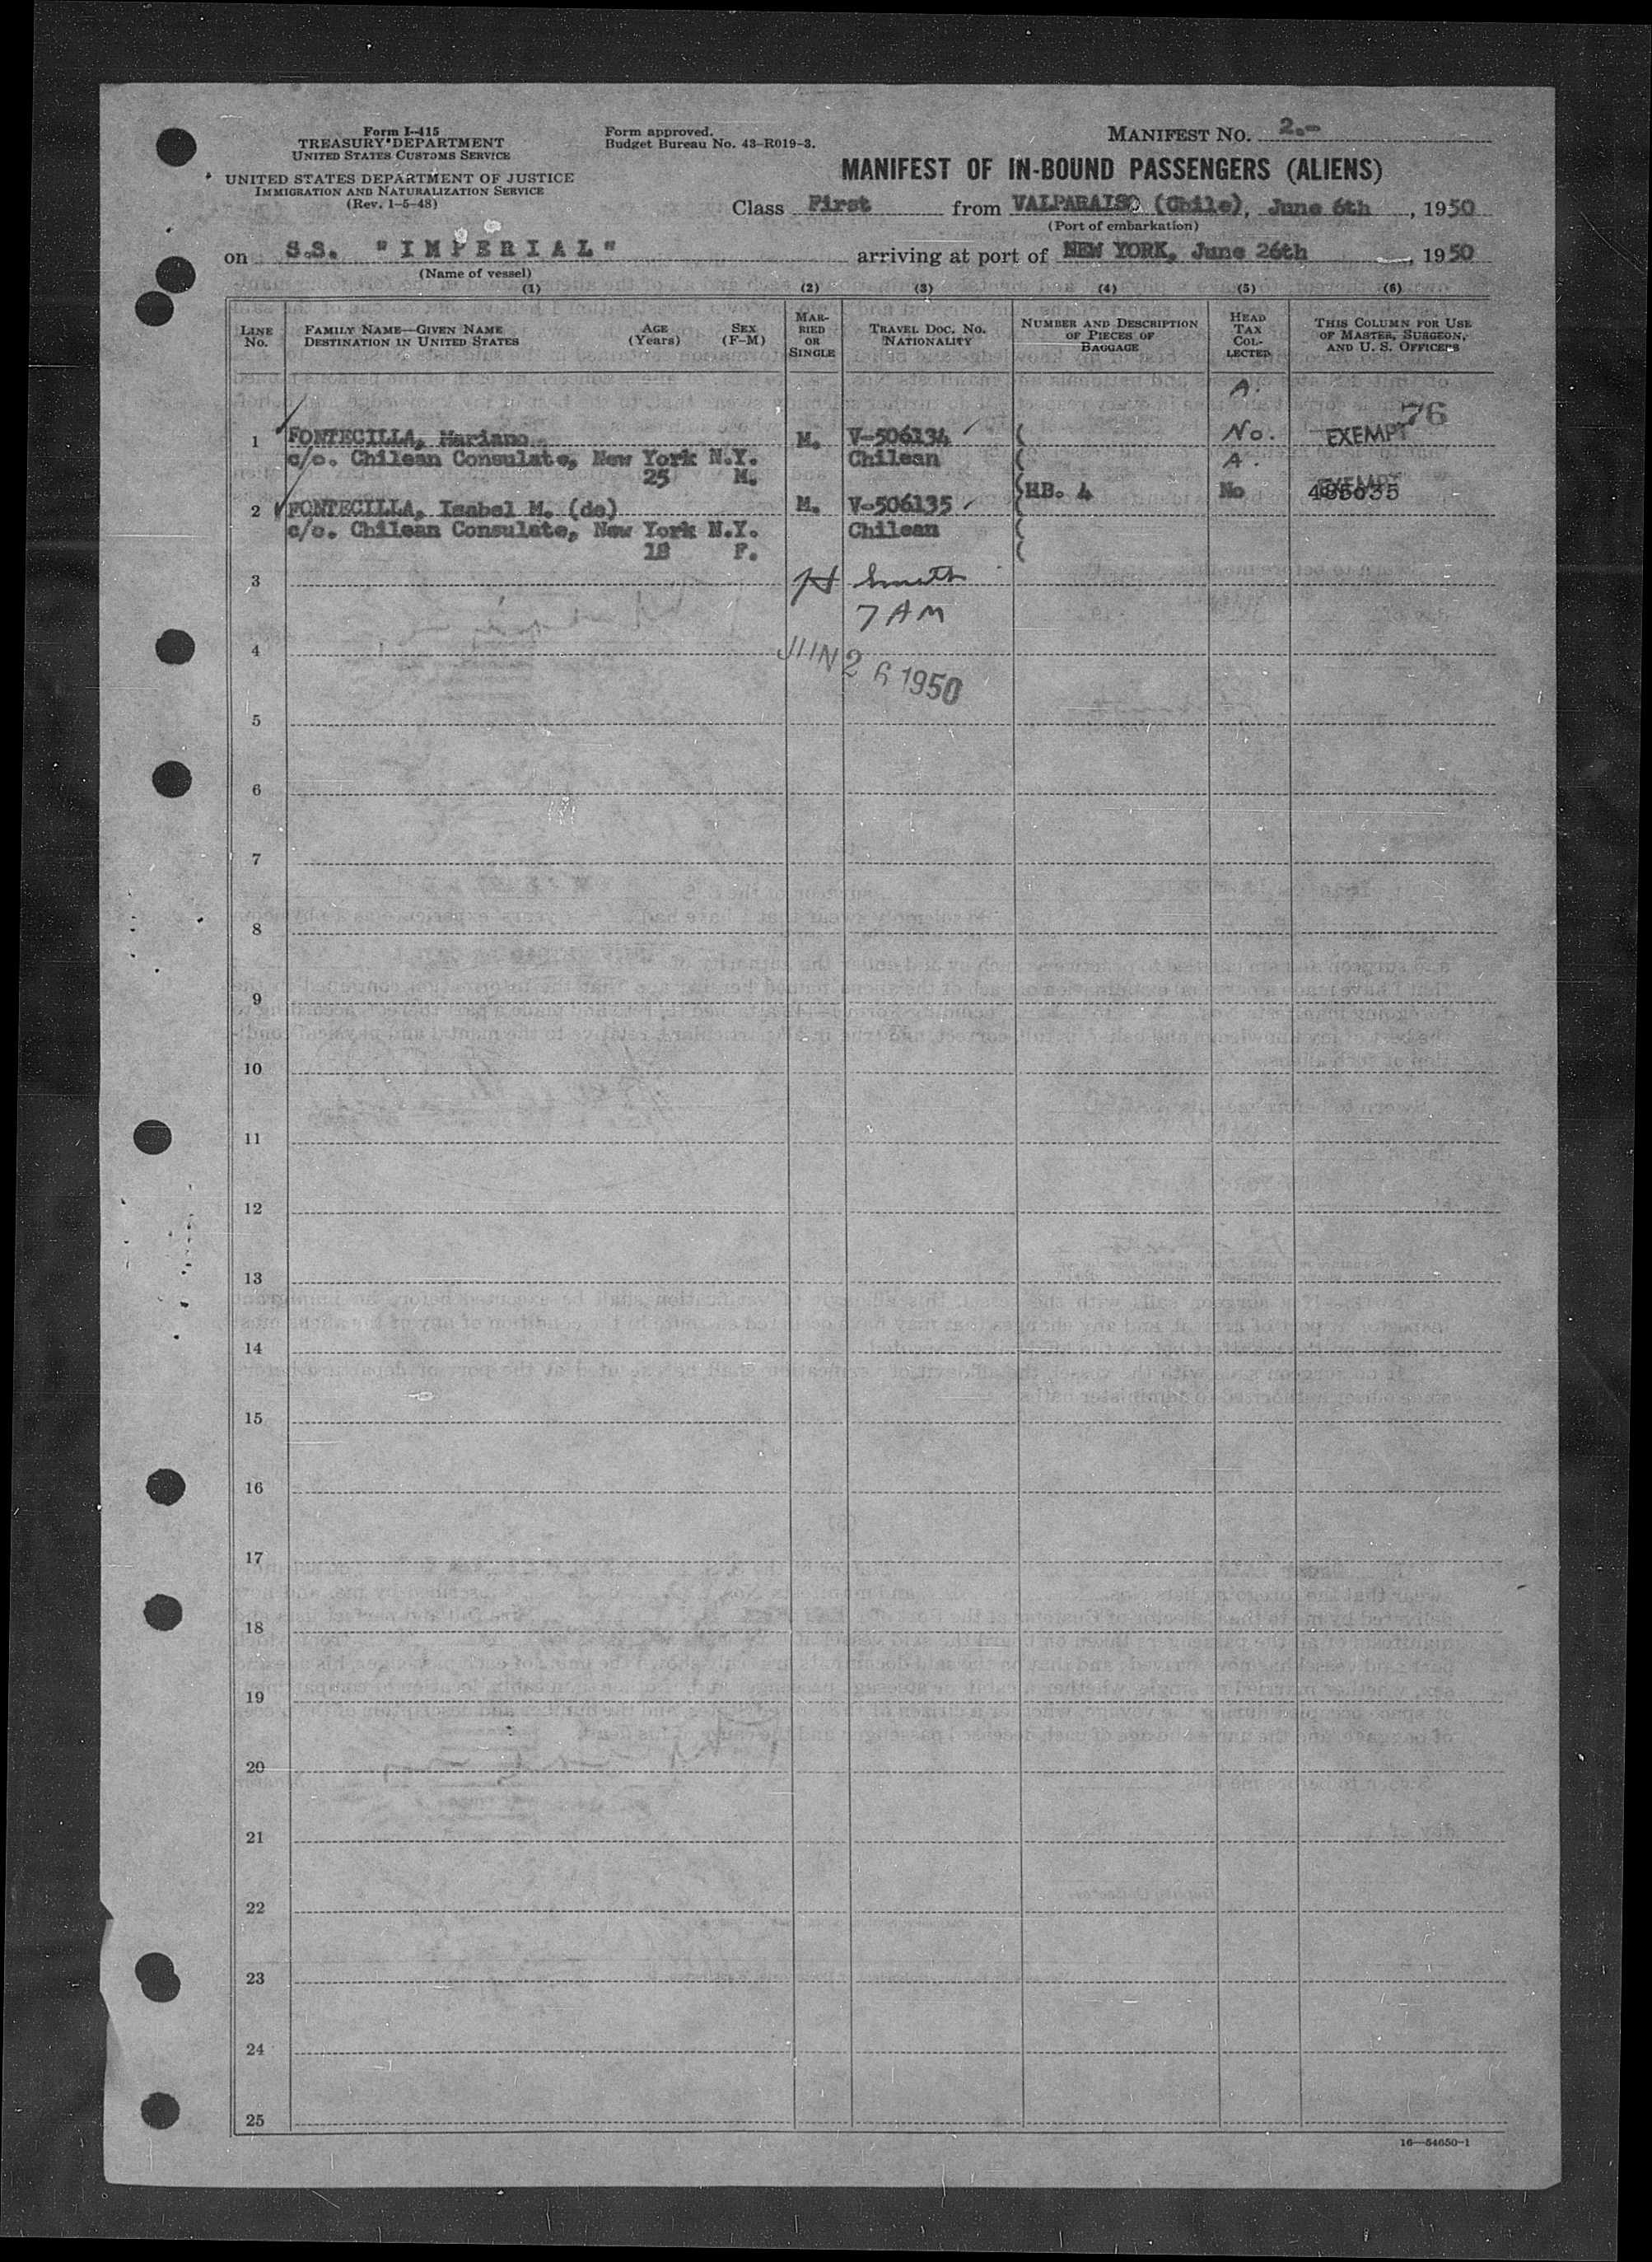 Form I-415
TREASURY DEPARTMENT
UNITED STATES CUSTOMS SERVICE
UNITED STATES DEPARTMENT OF JUSTICE
IMMIGRATION AND NATURALIZATION SERVICE
(Rev. 1-5-48)
Form approved.
Budget Bureau No. 43-R019-3.
MANIFEST NO. 2.-
MANIFEST OF IN-BOUND PASSENGERS (ALIENS)
Class First from VALPARAISO (Chile), June 6th, 1950
(Port of embarkation)
on S.S. "IMPERIAL" arriving at port of NEW YORK, June 26th, 1950
(Name of vessel)
(1) (2) (3) (4) (5) (6)
LINE No. FAMILY NAME—GIVEN NAME DESTINATION IN UNITED STATES AGE (Years) SEX (F-M) MARRIED OR SINGLE TRAVEL DOC. NO. NATIONALITY NUMBER AND DESCRIPTION OF PIECES OF BAGGAGE HEAD TAX COLLECTED THIS COLUMN FOR USE OF MASTER, SURGEON, AND U. S. OFFICERS
A. 76
1 FONTECILLA, Mariano M. V-506134 ( No. EXEMPT
c/o. Chilean Consulate, New York N.Y. Chilean ( A.
25 M.
(HB. 4 No EXEMPT
2 FONTECILLA, Isabel M. (de) M. V-506135 (
c/o. Chilean Consulate, New York N.Y. Chilean (
18 F. (
3 Smith
7 AM
4 JUN 26 1950
5
6
7
8
9
10
11
12
13
14
15
16
17
18
19
20
21
22
23
24
25
16—54650-1